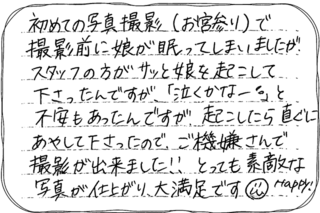 初めての写真撮影(お宮参り)で
撮影前に娘が眠ってしまいましたが
スタッフの方がサッと娘を起こして
下さったんですが、「泣くかなー。」と
不安もあったんですが、起こしたら直ぐに
あやして下さったので、ご機嫌さんで
撮影が出来ました!! とっても素敵な
写真が仕上がり、大満足です Happy!